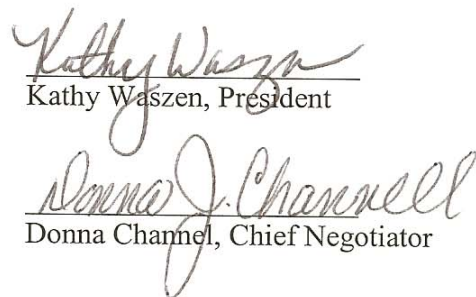 Kathy Waszen
Kathy Waszen, President
Donna J. Channell
Donna Channel, Chief Negotiator